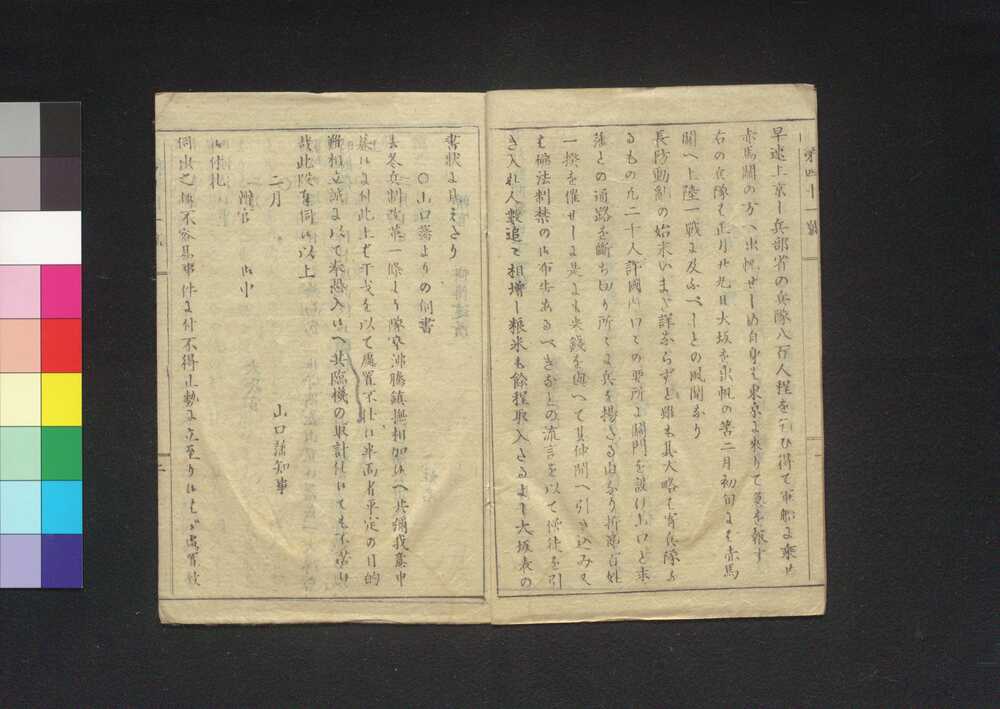 第四十一號
早速上京し兵部省の兵隊八百人程を
ひ得て軍艦に乗せ
赤馬關の方へ出帆せしめ自身も東京に來りて變を報ず
右の兵隊も正月廿九日大坂を出帆の筈二月初旬にも赤馬
關へ上陸一戰に及ぶべしとの風聞あり
長防動亂の始末いまだ詳ならずと雖も其大略を
兵隊
るもの凡二千人許國内
ての要所に關門を設け山口と末
藩との通路を斷ち切り所々に兵を揚ざる由なり
百姓
一揆を催せしに是にも米錢を與へて其仲間へ引き込み又
も
法制禁の御布告あるべきなどの流言を以て
徒を引
き入れ人數追々相増し粮米も餘程取入たるよし大坂表の
書状に見えたり
○山口藩よりの伺書
去冬兵制改革一條より隊卒沸騰鎮撫相加候へ共彌我意申
募候に付此上は干戈を以て處置不仕候半而者平定の目的
難相立誠に以て奉恐入候へ共臨機の取計仕候ても不苦候
哉此段奉伺候以上
二月
山口藩知事
辨官 御中
御付札
伺出之趣不容易事件に付不得止勢に立至り候はゞ處置致